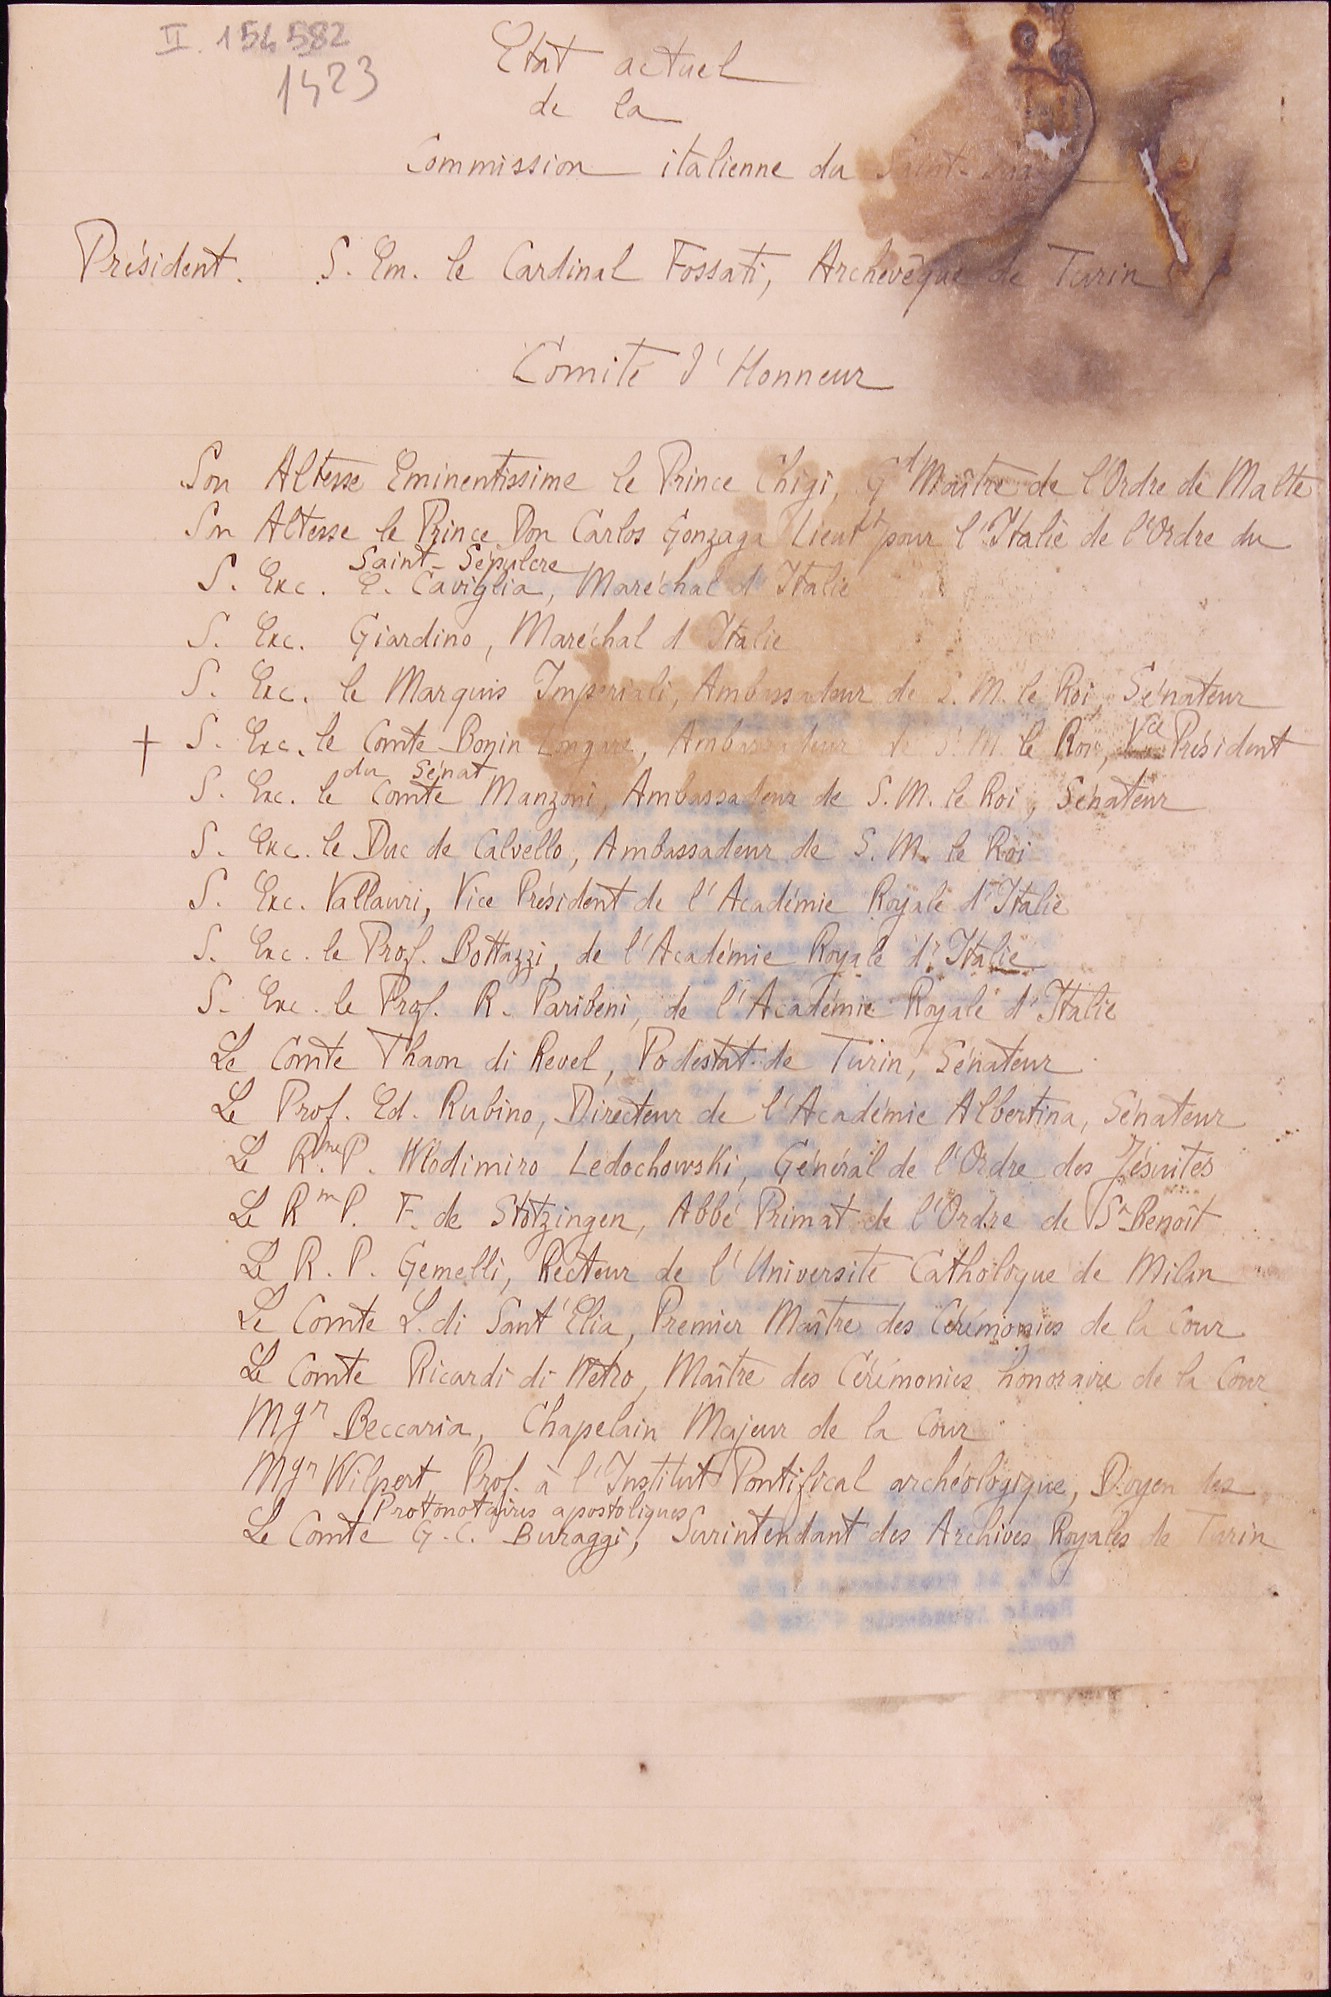 II. 154582
1423
Etat actuel
de la
Commission italienne du Saint
Président. S. Em. le Cardinal Fossati, Archevêque de Turin
Comité d'Honneur
Son Altesse Eminentissime le Prince Chigi, Gd Maître de l'Ordre de Malte
Son Altesse le Prince Don Carlos Gonzaga Lieutt pour l'Italie de l'Ordre du
Saint-Sépulcre
S. Exc. E. Caviglia, Maréchal d'Italie
S. Exc. Giardino, Maréchal d'Italie
S. Exc. le Marquis Imperiali, Ambassadeur de S. M. le Roi, Sénateur
+ S. Exc. le Comte Bonin Longare, Ambassadeur de S. M. le Roi, Vce Président
du Sénat
S. Exc. le Comte Manzoni, Ambassadeur de S. M. le Roi, Sénateur
S. Exc. le Duc de Calvello, Ambassadeur de S. M. le Roi
S. Exc. Vallauri, Vice Président de l'Académie Royale d'Italie
S. Exc. le Prof. Bottazzi, de l'Académie Royale d'Italie
S. Exc. le Prof. R. Paribeni, de l'Académie Royale d'Italie
Le Comte Thaon di Revel, Podestat de Turin, Sénateur
Le Prof. Ed. Rubino, Directeur de l'Académie Albertina, Sénateur
Le Rme P. Wlodimiro Ledochowski, Général de l'Ordre des Jésuites
Le Rm P. F. de Stotzingen, Abbé Primat de l'Ordre de St Benoît
Le R. P. Gemelli, Recteur de l'Université Catholique de Milan
Le Comte L. di Sant'Elia, Premier Maître des Cérémonies de la Cour
Le Comte Ricardi di Netro, Maître des Cérémonies honoraire de la Cour
Mgr Beccaria, Chapelain Majeur de la Cour
Mgr Wilpert, Prof. à l'Institut Pontifical archéologique, Doyen des
Protonotaires apostoliques
Le Comte G. C. Buraggi, Surintendant des Archives Royales de Turin